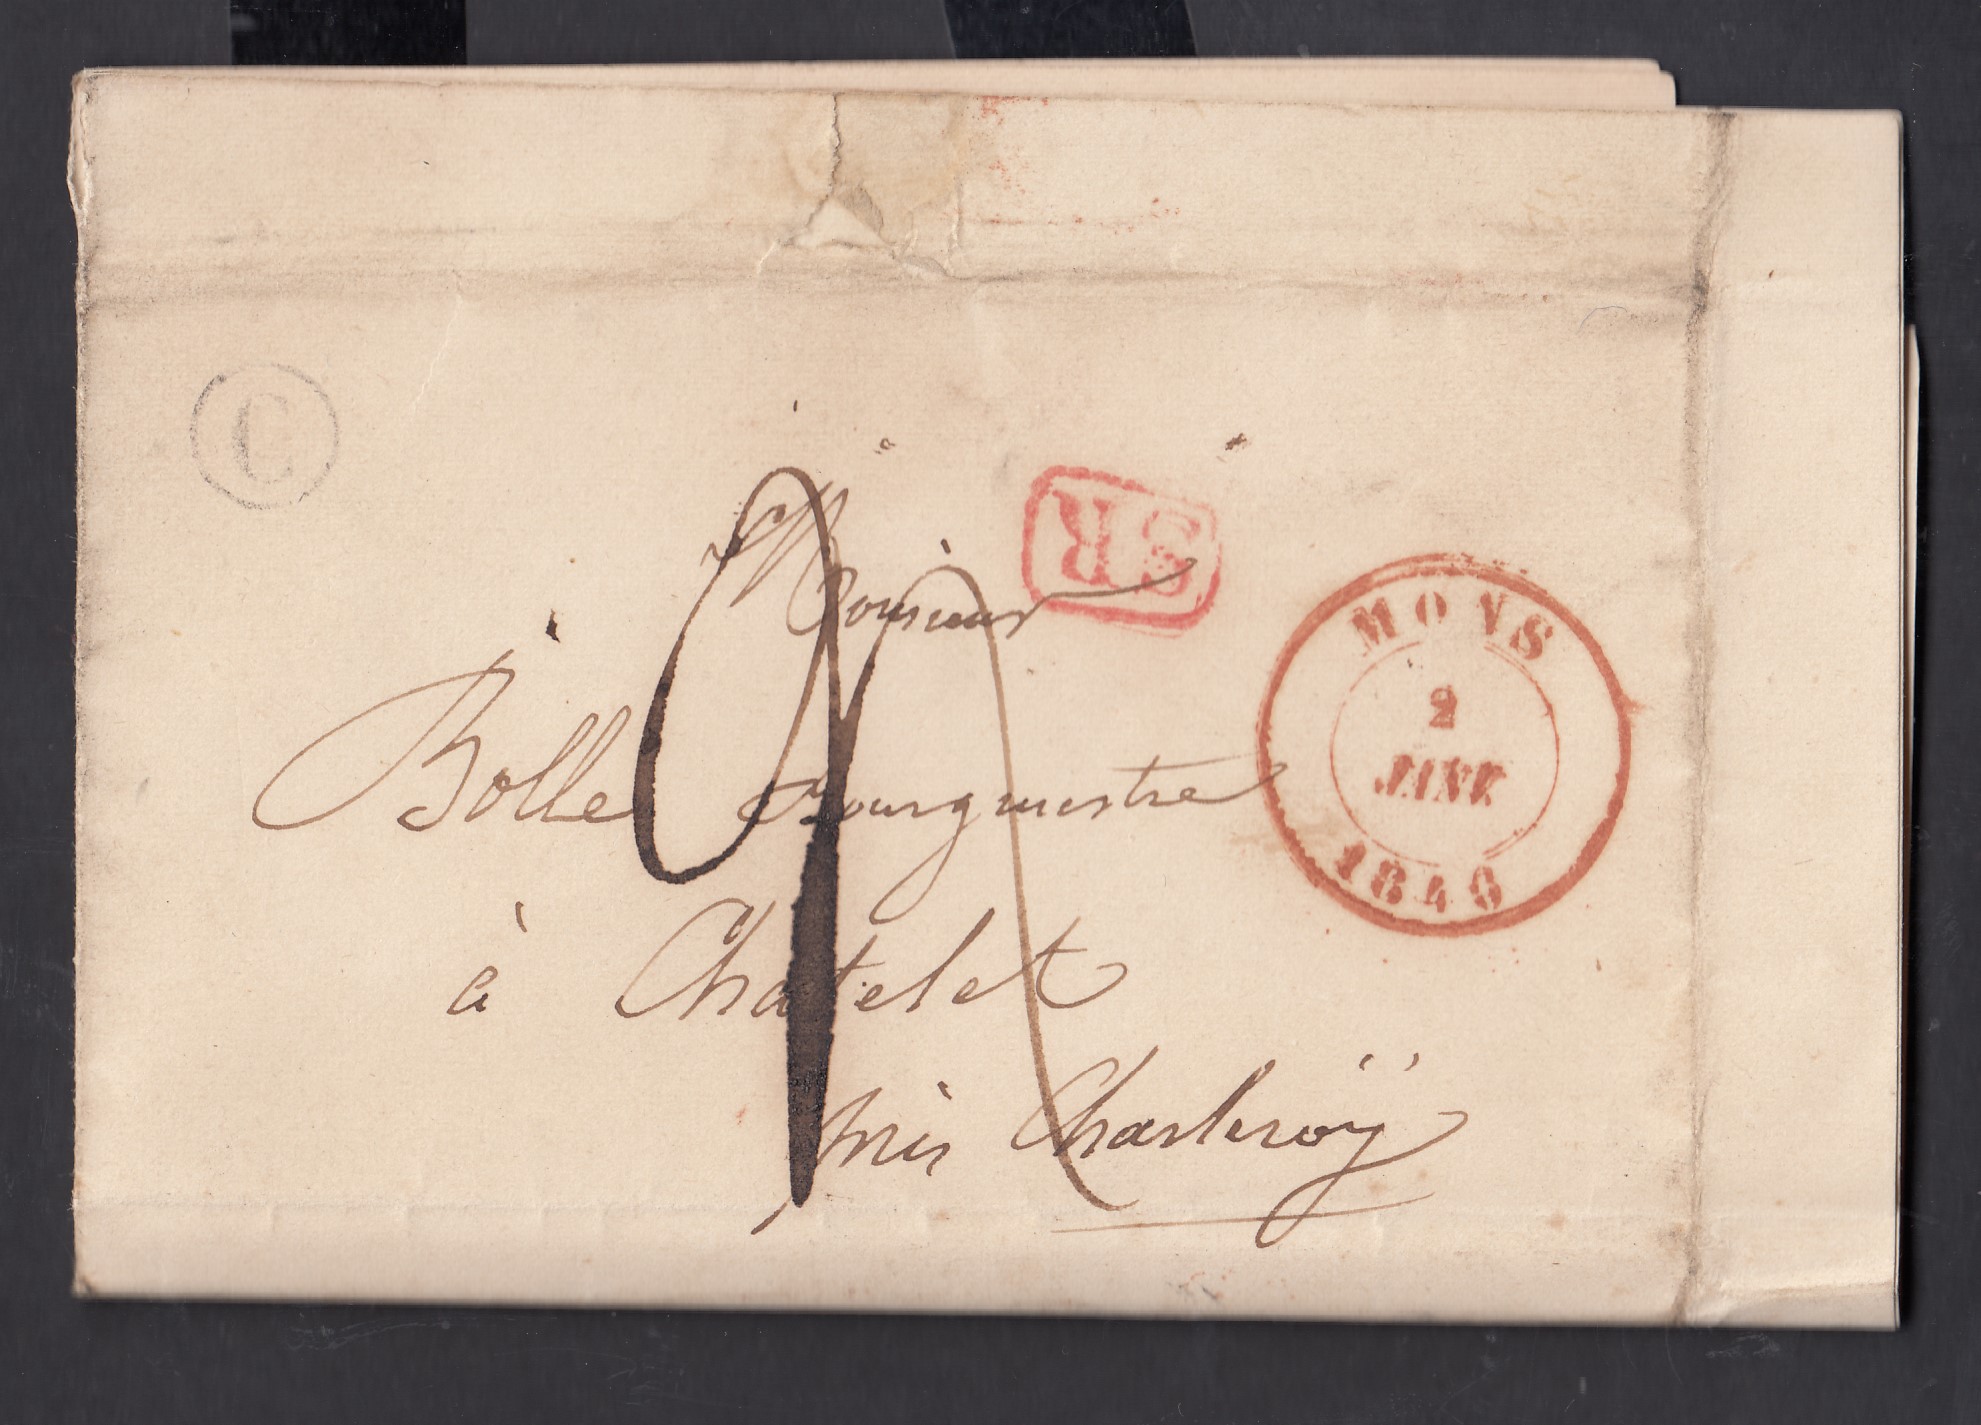 C
SR
MONS
2
JANV
1846
Monsieur
Bolle Bourgmestre
à Chatelet
près Charleroÿ